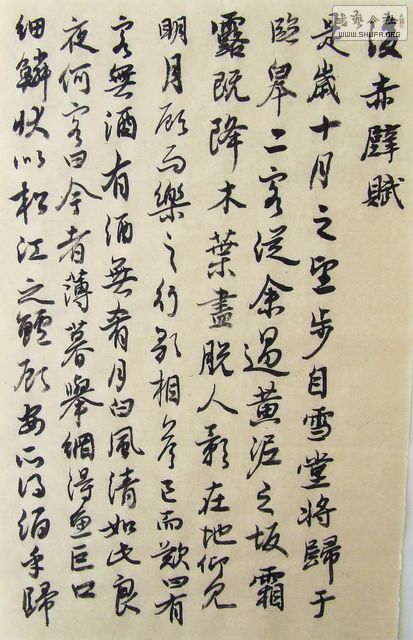 後赤壁賦
是歲十月之望步自雪堂將歸于
臨皋二客從余過黃泥之坂霜
露既降木葉盡脫人影在地仰見
明月顧而樂之行歌相答已而歎曰有
客無酒有酒無肴月白風清如此良
夜何客曰今者薄暮舉網得魚巨口
細鱗狀似松江之鱸顧安所得酒乎歸
WWW.SHUFA.ORG